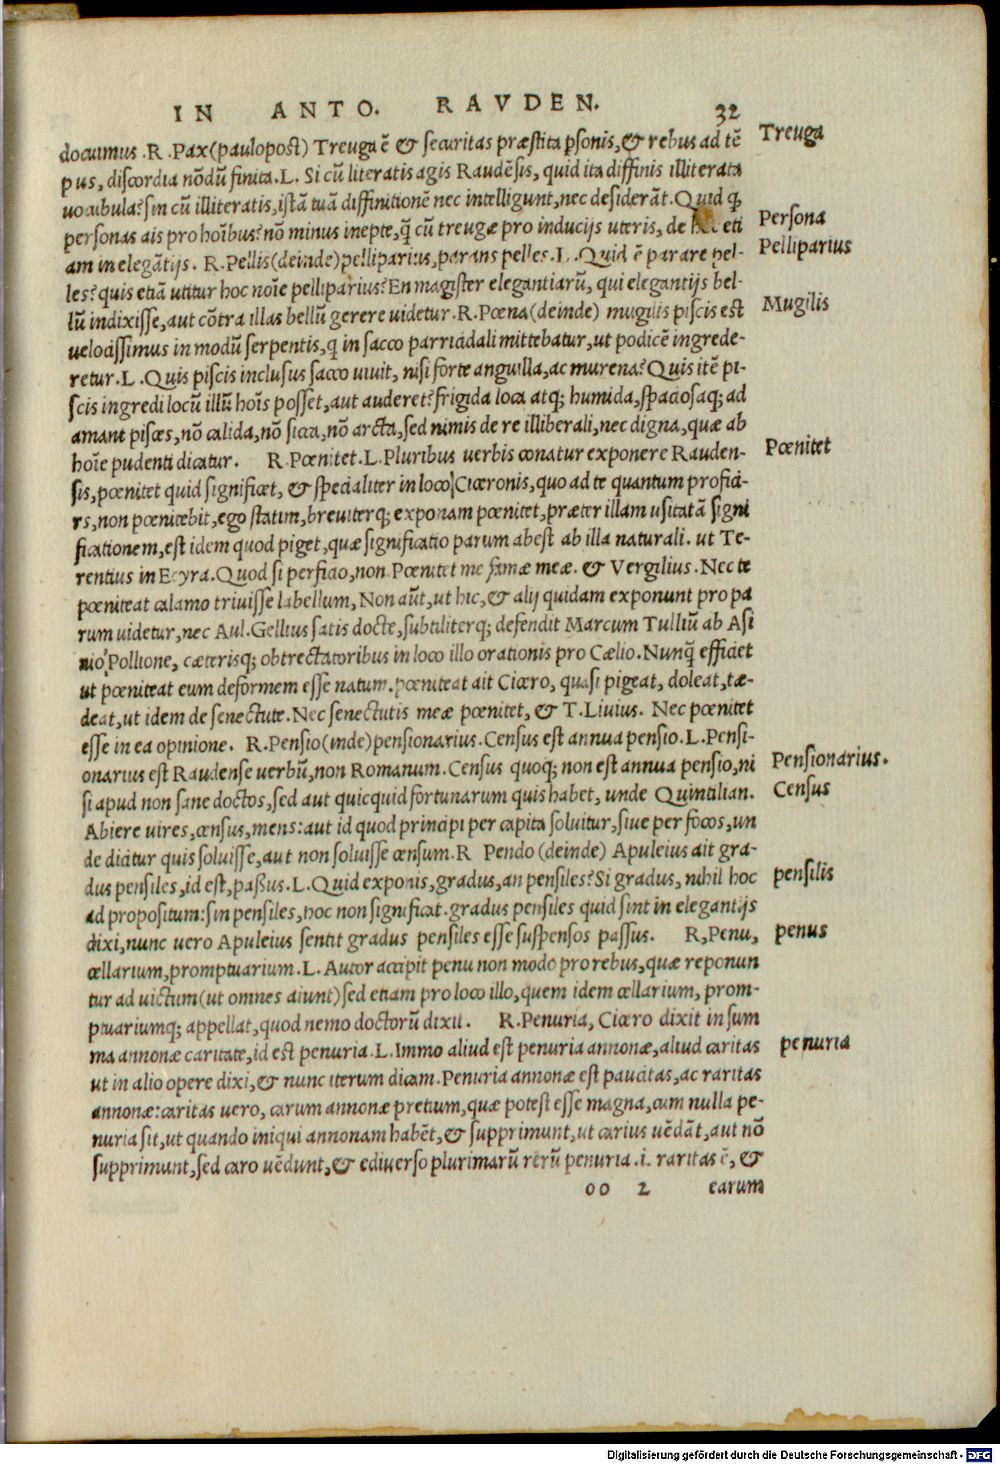 IN ANTO. RAVDEN. 32
docuimus .R .Pax(paulopost) Treuga ē & securitas præstita psonis,& rebus ad tē Treuga
pus, discordia nōdū finita.L. Si cū literatis agis Raudēsis, quid ita diffinis illiterata
uocabula? sin cū illiteratis, istā tuā diffinitionē nec intelligunt, nec desiderāt. Quid q̃
personas ais pro hoībus? nō minus inepte, q̃ cū treugæ pro inducijs uteris, de eti Persona
am in elegātijs. R.Pellis(deinde)pelliparius,parans pelles.L .Quid ē parare pel- Pelliparius
les? quis etiā utitur hoc noīe pelliparius? En magister elegantiarū, qui elegantijs bel-
lū indixisse,aut cōtra illas bellū gerere uidetur.R.Pœna(deinde) mugilis piscis est Mugilis
uelocissimus in modū serpentis,q in sacco parricidali mittebatur,ut podicē ingrede-
retur.L .Quis piscis inclusus sacco uiuit, nisi forte anguilla,ac murena? Quis itē pi-
scis ingredi locū illū hoīs posset,aut auderet? frigida loca atq; humida, spaciosaq; ad
amant pisces,nō calida,nō sicca,nō arcta,sed nimis de re illiberali,nec digna,quæ ab
hoīe pudenti dicatur. R.Pœnitet.L.Pluribus uerbis conatur exponere Rauden- Pœnitet
sis,pœnitet quid significet, & specialiter in loco Ciceronis,quo ad te quantum profici-
rs,non pœnitebit,ego statim,breuiterq; exponam pœnitet,præter illam usitatā signi
ficationem,est idem quod piget,quæ significatio parum abest ab illa naturali. ut Te-
rentius in Ecyra.Quod si perficio,non.Pœnitet me famæ meæ. & Vergilius.Nec te
pœniteat calamo triuisse labellum, Non aūt,ut hic,& alij quidam exponunt pro pa
rum uidetur,nec Aul.Gellius satis docte,subtiliterq; defendit Marcum Tulliū ab Asi
nio Pollione, cæterisq; obtrectatoribus in loco illo orationis pro Cælio.Nunq̃ efficiet
ut pœniteat eum deformem esse natum.pœniteat ait Cicero, quasi pigeat, doleat,tæ-
deat,ut idem de senectute.Nec senectutis meæ pœnitet, & T.Liuius. Nec pœnitet
esse in ea opinione. R.Pensio(inde)pensionarius.Census est annua pensio.L.Pensi-
onarius est Raudense uerbū,non Romanum.Census quoq; non est annua pensio,ni Pensionarius.
si apud non sane doctos,sed aut quicquid fortunarum quis habet, unde Quintilian. Census
Abiere uires,census,mens:aut id quod principi per capita soluitur,siue per focos,un
de dicitur quis soluisse,aut non soluisse censum.R Pendo (deinde) Apuleius ait gra-
dus pensiles,id est,passus.L.Quid exponis,gradus,an pensiles? Si gradus, nihil hoc pensilis
ad propositum:sin pensiles,hoc non significat.gradus pensiles quid sint in elegantijs
dixi,nunc uero Apuleius sentit gradus pensiles esse suspensos passus. R,Penu, penus
cellarium,promptuarium.L.Autor accipit penu non modo pro rebus,quæ reponun
tur ad uictum(ut omnes aiunt)sed etiam pro loco illo,quem idem cellarium, prom-
ptuariumq; appellat,quod nemo doctorū dixit. R.Penuria, Cicero dixit in sum
ma annonæ caritate,id est penuria.L.Immo aliud est penuria annonæ,aliud caritas penuria
ut in alio opere dixi,& nunc iterum dicam.Penuria annonæ est paucitas,ac raritas
annonæ:caritas uero, carum annonæ pretium,quæ potest esse magna,cum nulla pe-
nuria sit,ut quando iniqui annonam habēt,& supprimunt,ut carius uēdāt,aut nō
supprimunt,sed caro uēdunt,& ediuerso plurimarū rerū penuria .i. raritas ē, &
oo 2 earum